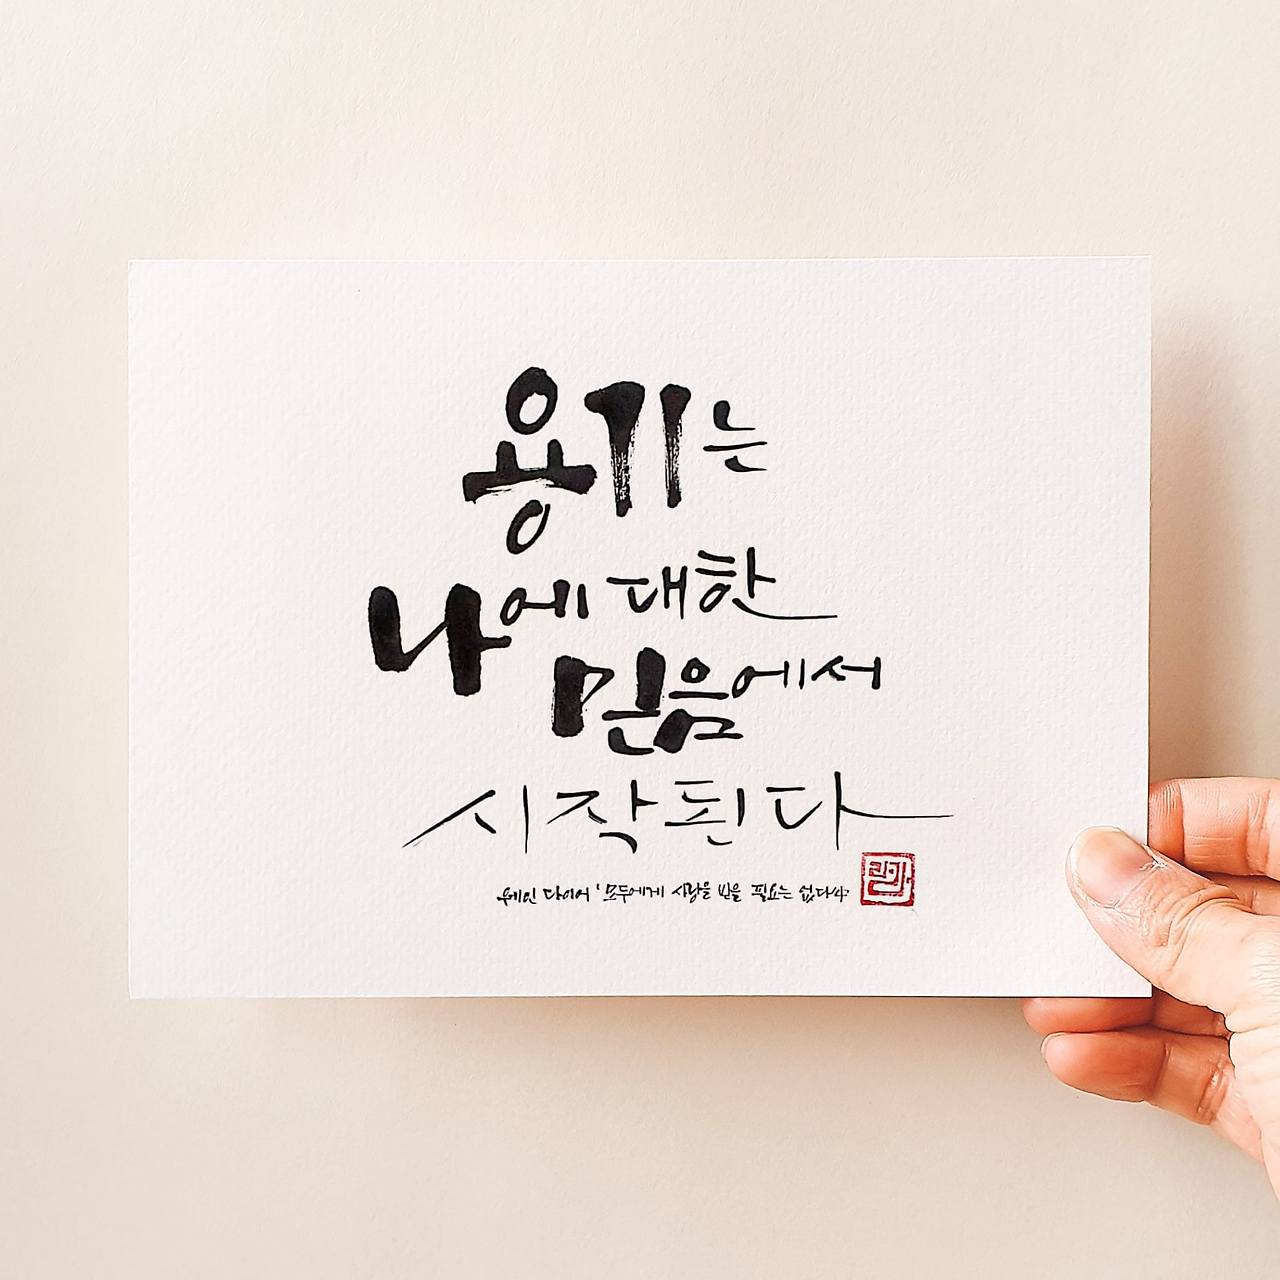 용기는
나에 대한
믿음에서
시작된다
웨인 다이어 '모두에게 사랑을 받을 필요는 없다'中